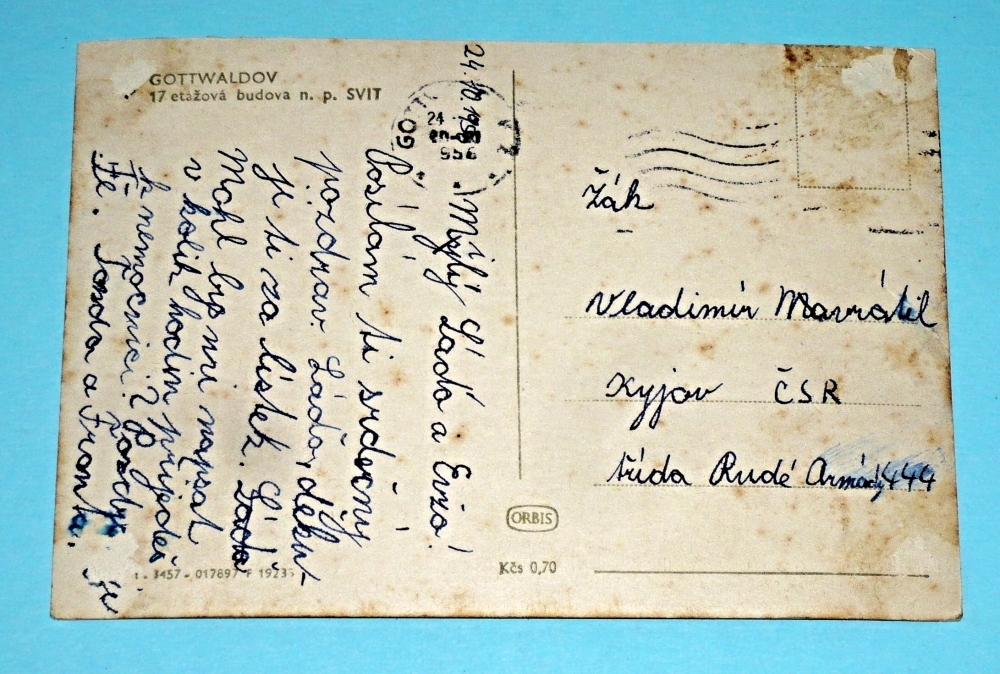 GOTTWALDOV
17 etážová budova n. p. SVIT
24. 10. 1956
Milý Láďo a Evžo!
Posílám ti srdečný
pozdrav. Láďo, děku-
ji ti za lístek. Láďa
Mohl bys mi napsat
v kolik hodin přijedeš
k nemocnici?
Fr. Jonda a Franta.
GOTT
24
956
Žák
Vladimír Navrátil
Kyjov ČSR
třída Rudé Armády 444
ORBIS
Kčs 0,70
3457 - 017897 F 1923